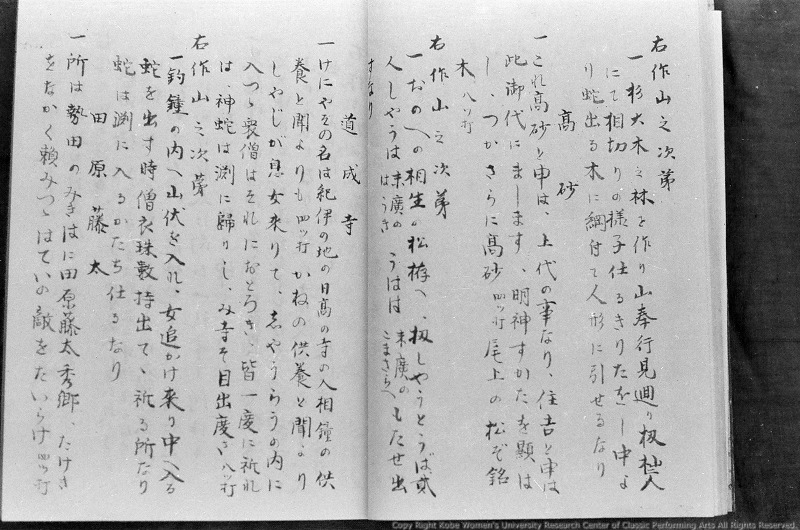 右作山之次第
一杉大木之林を作り山奉行見廻り杣人
にて相切りの様子仕るきりたをし中よ
り蛇出る木に綱付て人形に引せるなり
高砂
一これ高砂と申は、上代の事なり、住吉と申は
此御代にまします、明神すかたを顕は
し、つかさらに高砂 四ツ打 尾上の松ぞ銘
木 八ツ打
右作山之次第
一おのへの相生の松拵へ、扨しやうとうば弐
人しやうは 末廣の はうき うはは 末廣の こまさらへ もたせ出
すなり
道成寺
一けにやその名は紀伊の地の日高の寺の入相鐘の供
養と聞よりも 四ツ打 かねの供養と聞より
しやじが息女来りて、志やうらうの内に
入つゝ衆僧はそれにおとろき、皆一度に祈れ
は、神蛇は渕に歸りし、み寺そ目出度さ 八ツ打
右作山之次第
一釣鐘の内へ山伏を入れ、女追かけ来り中へ入る
蛇を出す時僧衣珠數持出て、祈る所なり
蛇は渕に入るかたち仕るなり
田原藤太
一所は勢田のみきはに田原藤太秀郷、たけき
をなかく頼みつゝはていの敵をたいらけ 四ツ打
Copy Right Kobe Women's University Research Center of Classic Performing Arts All Rights Reserved.